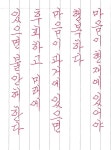 마음이 현재에 있어야
행복하다
마음이 과거에 있으면
후회하고 미래에
있으면 불안해한다